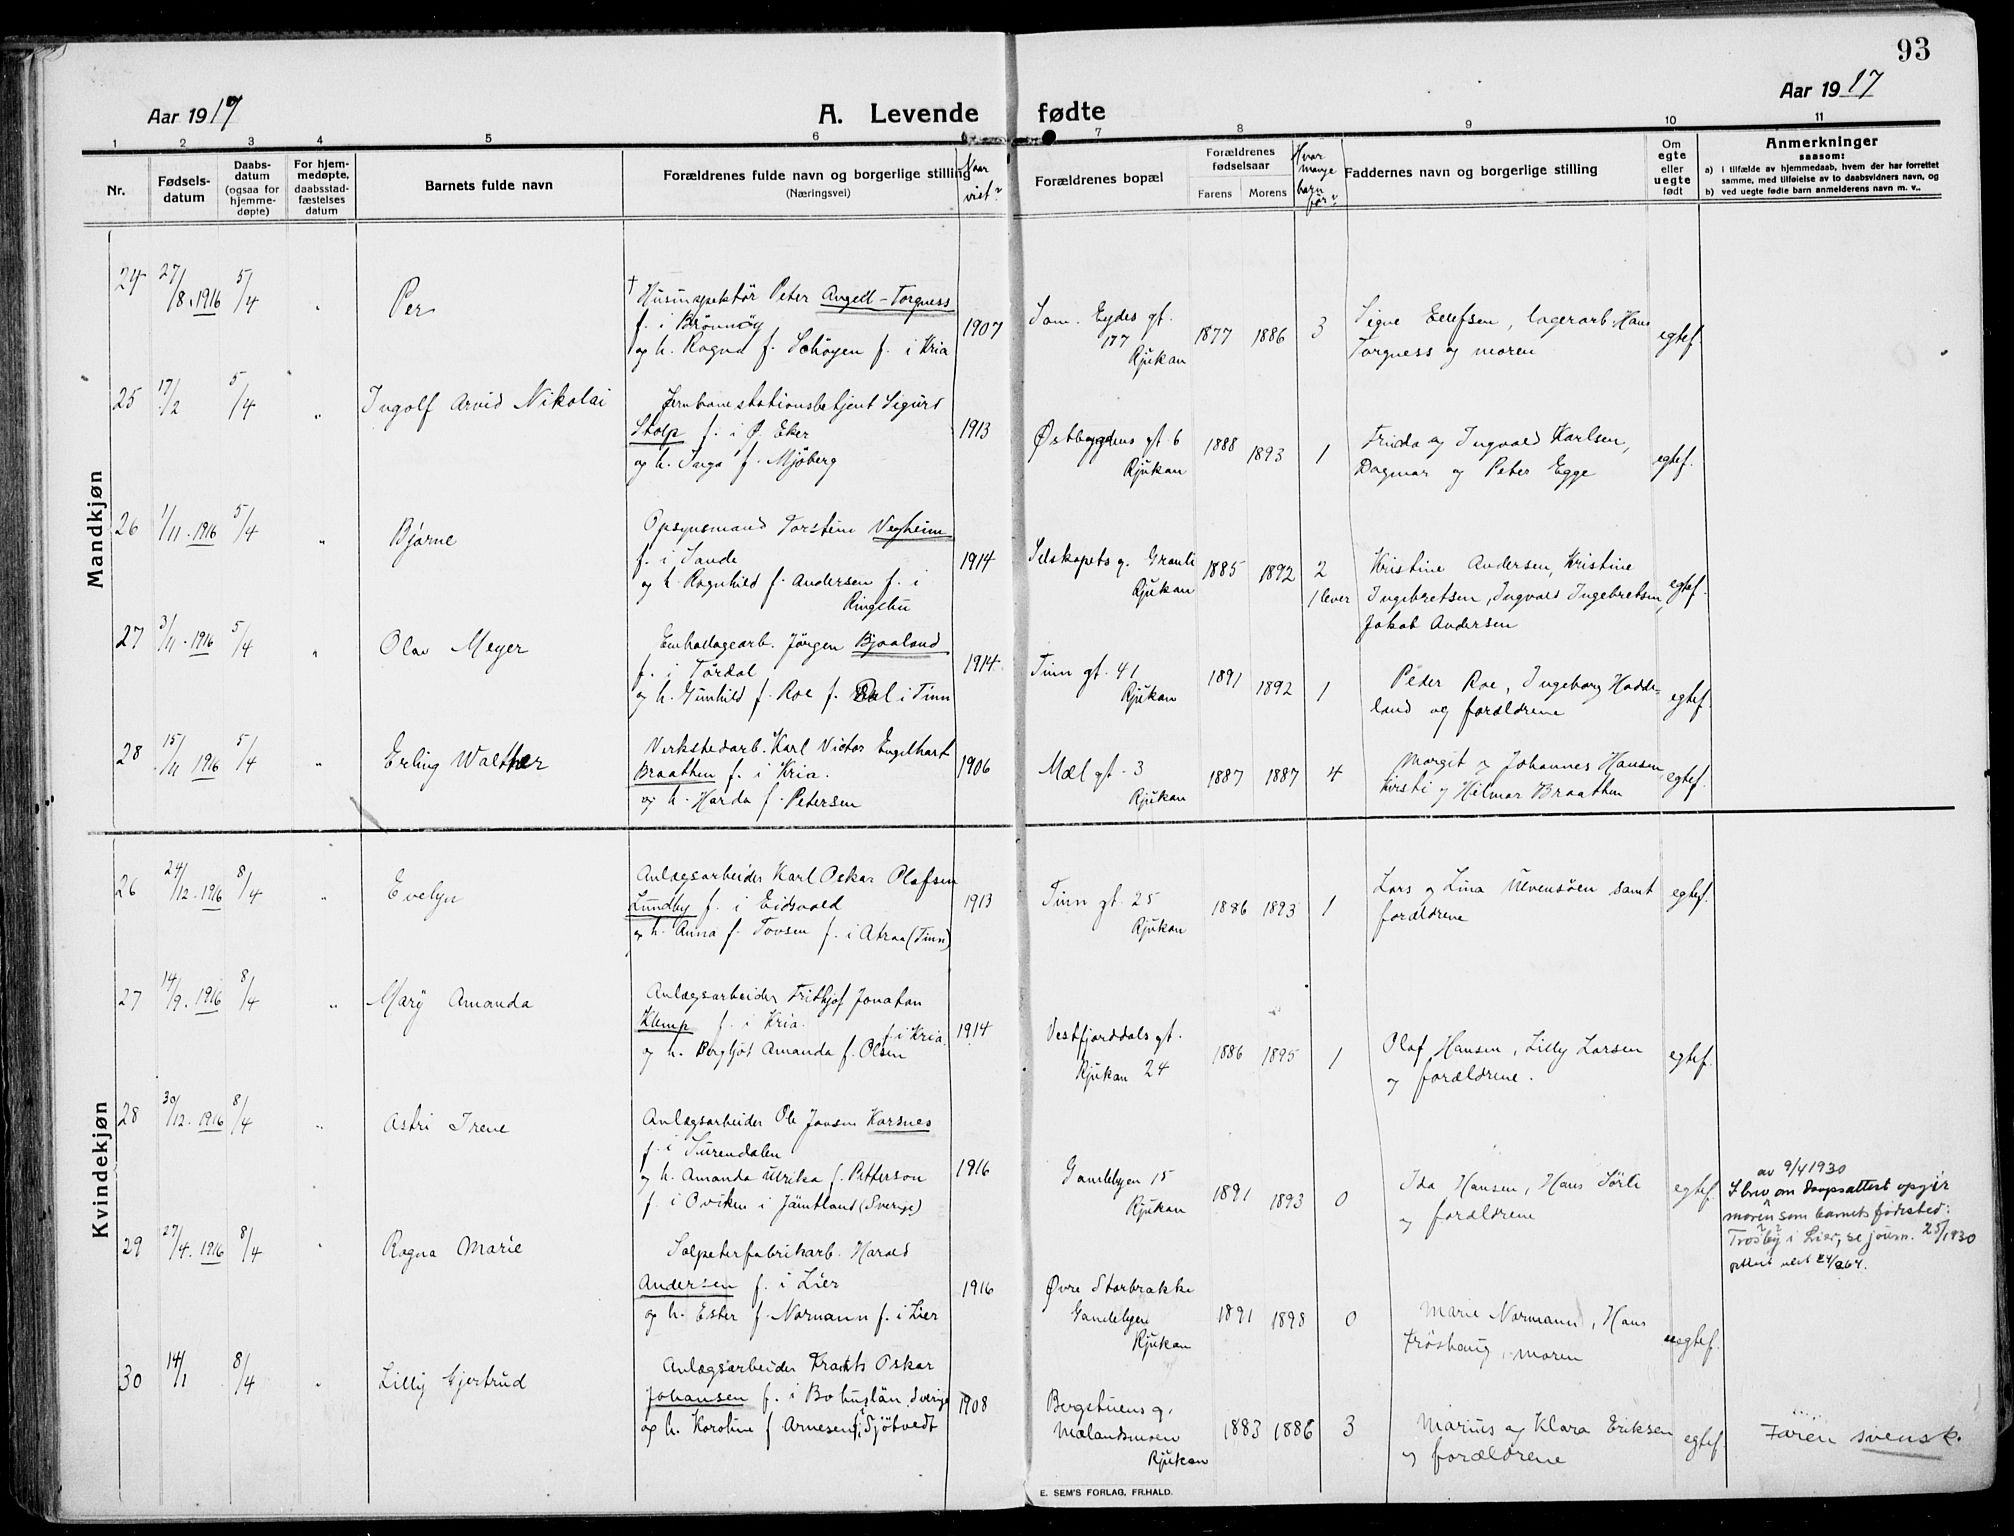 93
Aar 1917
A. Levende fødte
Aar 1917
1 2 3 4 5 6 7 8 9 10 11
Nr.
Fødsels-
datum
Daabs-
datum
(ogsaa for
hjemme-
døpte)
For hjem-
medøpte,
daabsstad-
fæstelses
datum
Barnets fulde navn
Forældrenes fulde navn og borgerlige stilling
(Næringsvei)
Naar
viet?
Forældrenes bopæl
Forældrenes
fødselsaar
Farens Morens
Hvor
mange
barn
før?
Faddernes navn og borgerlige stilling
Om
egte
eller
uegte
født
Anmerkninger
saasom:
a) i tilfælde av hjemmedaab, hvem der har forrettet
samme, med tilføielse av to daabsvidners navn, og
b) ved uegte fødte barn anmelderens navn m. v..
Mandkjøn
24 27/8.1916 5/4 " Per
† Husinspektör Peter Angell-Torgness
f. i Brönnöy
og h. Ragna f. Schöyen f. i Kria
1907
Sam. Eydes gt.
177
Rjukan
1877 1886 3
Signe Ellefsen, lagerarb. Hans
Torgness og moren
egtef.
25 17/2 5/4 " Ingolf Arvid Nikolai
Jernbanestationsbetjent Sigurd
Stolp f. i Ø. Eker
og h. Inga f. Mjöberg
1913
Østbygdens gt. 6
Rjukan
1888 1893 1
Frida og Ingvald Karlsen,
Dagmar og Peter Egge
egtef.
26 1/11.1916 5/4 " Bjarne
Opsynsmand Torstein Vegheim
f. i Sande
og h. Ragnhild f. Andersen f. i
Ringebu
1914
Selskapets g. Granli
Rjukan
1885 1892 2
1 lever
Kristine Andersen, Kristine
Ingebretsen, Ingvald Ingebretsen,
Jakob Andersen
egtef.
27 3/11.1916 5/4 " Olav Meyer
Emballagearb. Jörgen Bjaaland
f. i Tördal
og h. Gunhild f. Roe f. Dal i Tinn
1914
Tinn gt. 41
Rjukan
1891 1892 1
Peder Roe, Ingeborg Hadde-
land og forældrene
egtef.
28 15/11 1916 5/4 " Erling Walther
Verkstedarb. Karl Victor Engelhart
Braathen f. i Kria.
og h. Harda f. Petersen
1906
Mæl gt. 3
Rjukan
1887 1887 4
Margit og Johannes Hansen,
Kirsti og Hilmar Braathen
egtef.
Kvindekjøn
26 24/12.1916 8/4 " Evelyn
Anlægsarbeider Karl Oskar Olafsen
Lundby f. i Eidsvold
og h. Anna f. Tovsen f. i Atraa (Tinn)
1913
Tinn gt. 25
Rjukan
1886 1893 1
Lars og Lina Ulvensöen samt
forældrene
egtef.
27 14/9.1916 8/4 " Mary Amanda
Anlægsarbeider Frithjof Jonatan
Klemp f. i Kria.
og h. Bergljot Amanda f. Olsen f. i Kria.
1914
Vestfjorddals gt.
Rjukan 24
1886 1895 1
Olaf Hansen, Lilly Larsen
og forældrene.
egtef.
28 30/12.1916 8/4 " Astri Irene
Anlægsarbeider Ole Jonsen Korsnes
f. i Surendalen
og h. Amanda Ulrika f. Petterson
f. i Oviken i Jämtland (Sverige)
1916
Gamlebyen 15
Rjukan
1891 1893 0
Ida Hansen, Hans Sörli
og forældrene
egtef.
29 27/4.1916 8/4 " Ragna Marie
Salpeterfabrikarb. Harald
Andersen f. i Lier
og h. Ester f. Normann f. i Lier
1916
Øvre Storbrakke
Gamlebyen
Rjukan
1891 1898 0
Marie Normann, Hans
Fröshaug, moren
uegtef.
av 9/4 1930
I brev om daapsattest opgir
moren som barnets fødested:
Trosby i Lier, se journ. 25/1930
30 14/1 8/4 " Lilly Gjertrud
Anlægsarbeider Frants Oskar
Johansen f. i Bohuslän, Sverige
og h. Karoline f. Arnesen f. i Sjötvedt
1908
Bergstuens g.
Mælandsmoen
Rjukan
1883 1886 3
Marius og Klara Eriksen
og forældrene
egtef.
Faren svensk.
E. SEM'S FORLAG, FR.HALD.